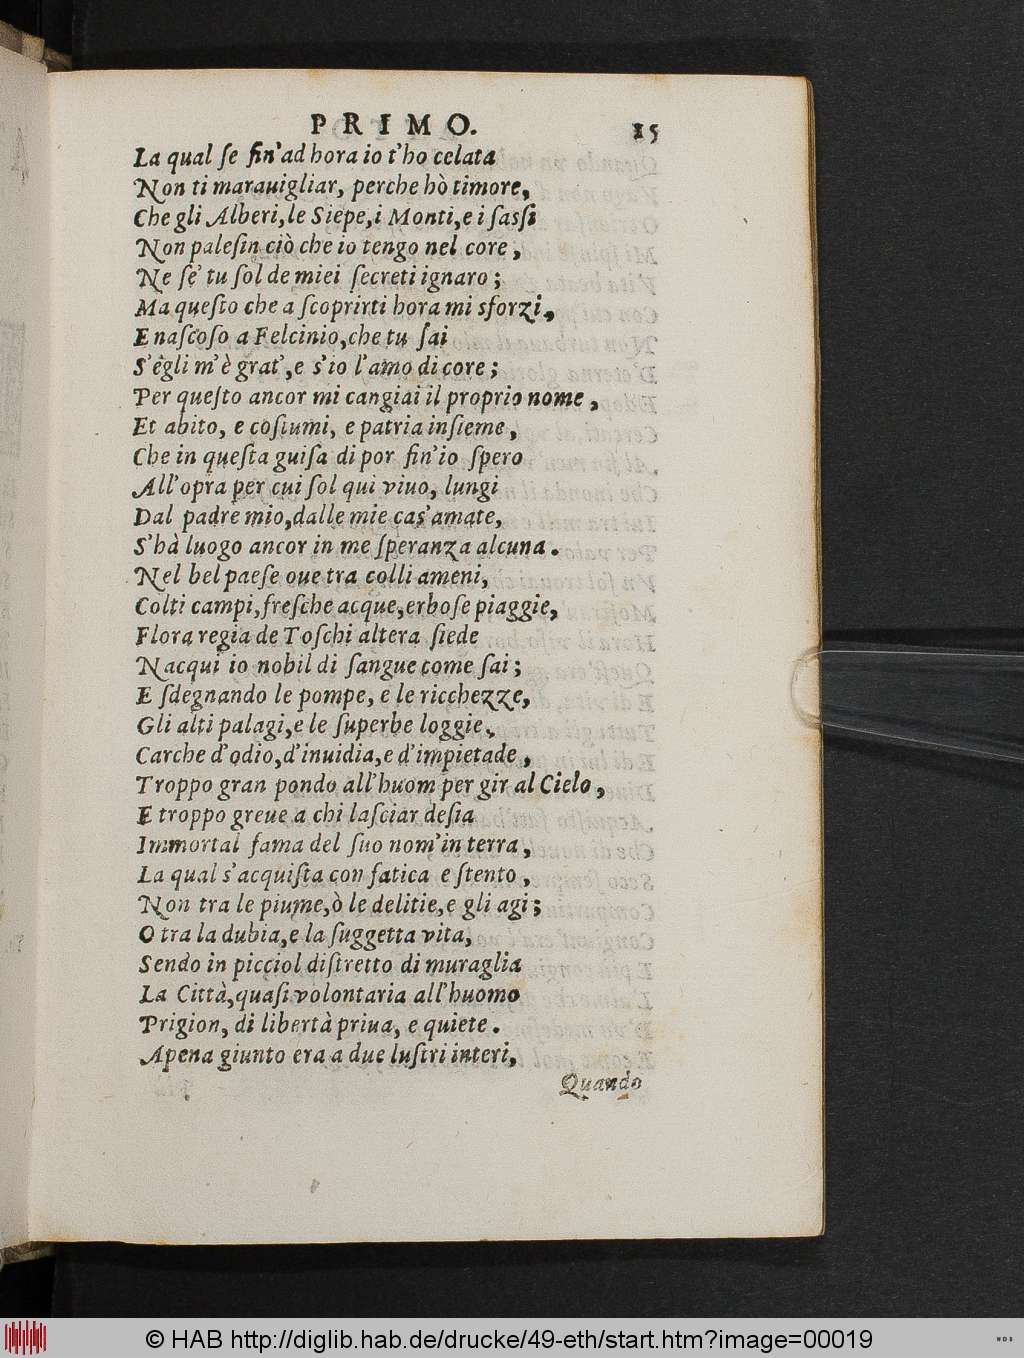 PRIMO. 15
La qual ſe fin'ad hora io t'ho celata
Non ti marauigliar, perche hò timore,
Che gli Alberi, le Siepe, i Monti, e i ſaſſi
Non paleſin ciò che io tengo nel core,
Ne ſe' tu ſol de miei ſecreti ignaro;
Ma queſto che a ſcoprirti hora mi sforzi,
E naſcoſo a Felcinio, che tu ſai
S'egli m'è grat', e s'io l'amo di core;
Per queſto ancor mi cangiai il proprio nome,
Et abito, e coſtumi, e patria inſieme,
Che in queſta guiſa di por fin'io ſpero
All'opra per cui ſol qui viuo, lungi
Dal padre mio, dalle mie cas'amate,
S'hà luogo ancor in me ſperanza alcuna.
Nel bel paeſe oue tra colli ameni,
Colti campi, freſche acque, erboſe piaggie,
Flora regia de Toſchi altera ſiede
Nacqui io nobil di ſangue come ſai;
E sdegnando le pompe, e le ricchezze,
Gli alti palagi, e le ſuperbe loggie,
Carche d'odio, d'inuidia, e d'impietade,
Troppo gran pondo all'huom per gir al Cielo,
E troppo greue a chi laſciar deſia
Immortal fama del ſuo nom'in terra,
La qual s'acquiſta con fatica e ſtento,
Non tra le piume, ò le delitie, e gli agi;
O tra la dubia, e la ſuggetta vita,
Sendo in picciol diſtretto di muraglia
La Città, quaſi volontaria all'huomo
Prigion, di libertà priua, e quiete.
Apena giunto era a due luſtri interi,
Quando
© HAB http://diglib.hab.de/drucke/49-eth/start.htm?image=00019